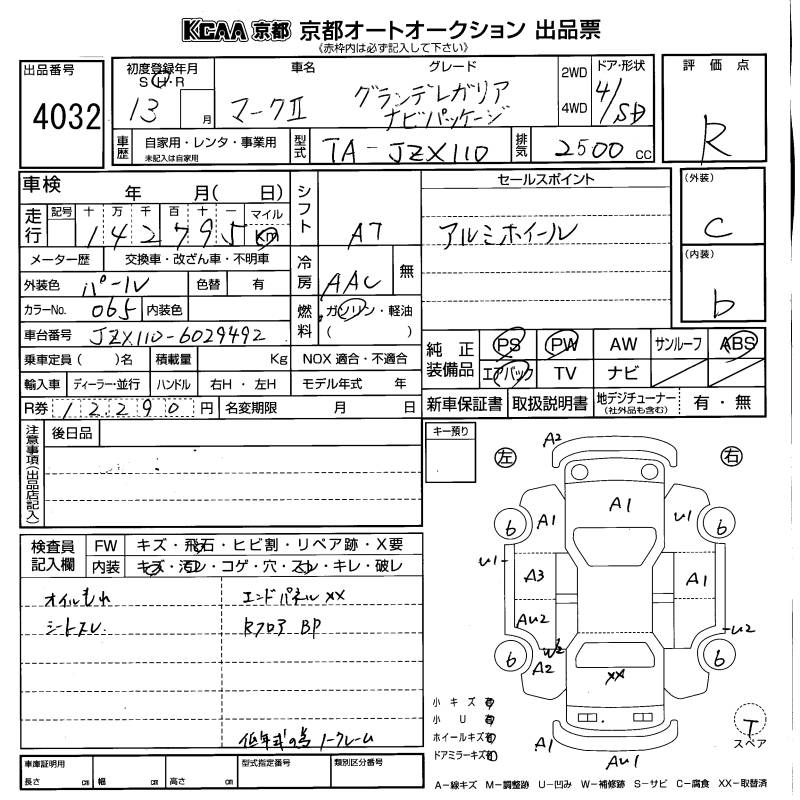 KCAA 京都 京都オートオークション 出品票
《赤枠内は必ず記入して下さい》
出品番号
4032
初度登録年月
S・H・R
13 月
車名
マークⅡ
グレード
グランデレガリア
ナビパッケージ
2WD
4WD
ドア・形状
4/SD
評価点
R
車歴
自家用・レンタ・事業用
未記入は自家用
型式
TA-JZX110
排気
2500 cc
車検 年 月( 日)
走行
記号 十 万 千 百 十 一 マイル
1 4 2 7 9 5 km
シフト
A7
メーター歴 交換車・改ざん車・不明車
冷房
AAC 無
外装色 パール 色替 有
カラーNo. 065 内装色
燃料
ガソリン・軽油
( )
車台番号 JZX110-6029492
乗車定員( )名 積載量 Kg NOX 適合・不適合
輸入車 ディーラー・並行 ハンドル 右H・左H モデル年式 年
R券 12290円 名変期限 月 日
セールスポイント
アルミホイール
(外装)
C
(内装)
b
純正装備品
PS PW AW サンルーフ ABS
エアバック TV ナビ
新車保証書 取扱説明書 地デジチューナー (社外品も含む) 有・無
注意事項(出品店記入)
後日品
キー預り
左
右
検査員記入欄
FW キズ・飛石・ヒビ割・リペア跡・X要
内装 キズ・汚レ・コゲ・穴・スレ・キレ・破レ
オイルもれ
シートスレ
エンドパネルXX
Rフロア BP
低年式の為ノークレーム
A2
A1
6 A1 U1 6
U1
A3 A1
AU2
U2
W2
6 A2 XX 6
A1
AU1
小キズ有
小U有
ホイールキズ有
ドアミラーキズ有
T
スペア
車庫証明用
長さ cm 幅 cm 高さ cm
型式指定番号
類別区分番号
A−線キズ M−調整跡 U−凹み W−補修跡 S−サビ C−腐食 XX−取替済